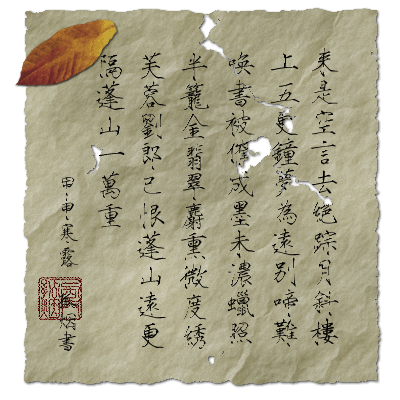 來是空言去絕踪月斜樓
上五更鐘夢為遠別啼難
喚書被催成墨未濃蠟照
半籠金翡翠麝熏微度繡
芙蓉劉郎已恨蓬山遠更
隔蓬山一萬重
甲申寒露
書